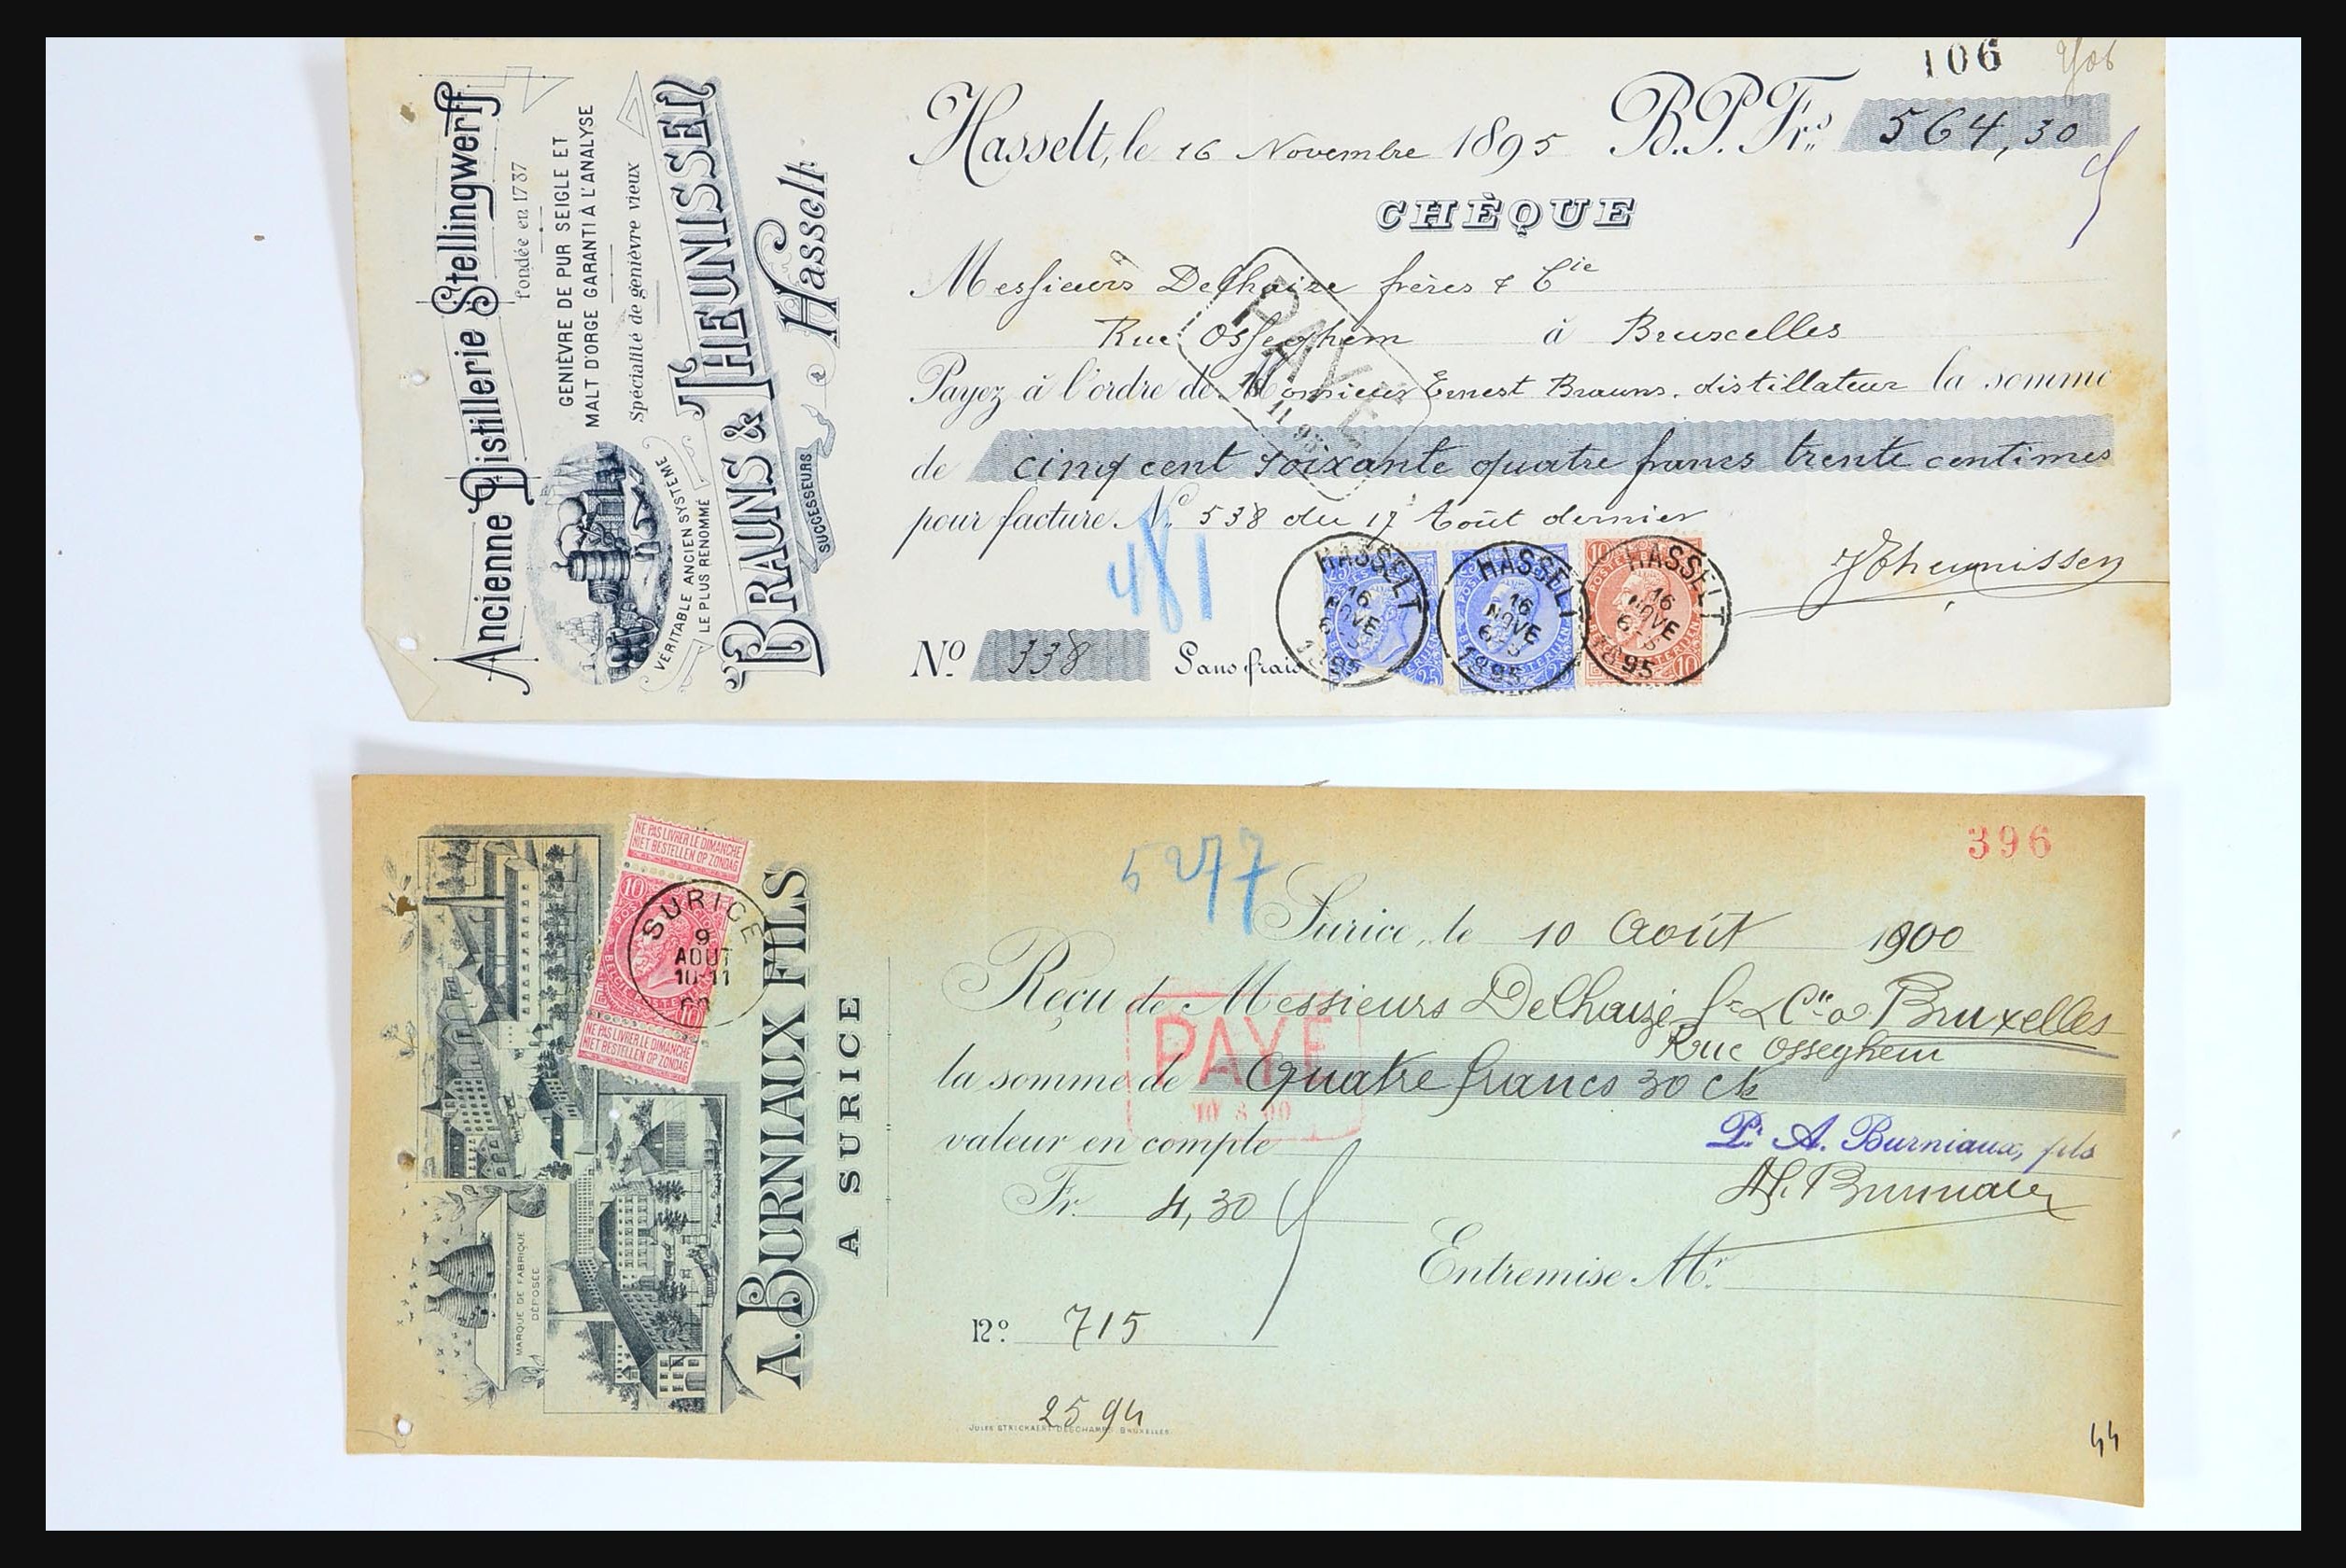 106
Ancienne Distillerie Stellingwerff
fondée en 1737
GENIÈVRE DE PUR SEIGLE ET
MALT D'ORGE GARANTI À L'ANALYSE
Spécialité de genièvre vieux
VÉRITABLE ANCIEN SYSTÈME
LE PLUS RENOMMÉ
BRAUNS & J. THEUNISSEN
SUCCESSEURS
Hasselt
Hasselt, le 16 Novembre 1895 B.P.Frs. 564,30
CHÈQUE
Messieurs Delhaize frères & Cie
Rue Osseghem à Bruxcelles
PAYÉ
11 95
Payez à l'ordre de Monsieur Ernest Brauns. distillateur la somme
de cinq cent soixante quatre francs trente centimes
pour facture No. 538 du 17 Août dernier
481
JTheunissen
No. 338 Sans frais
HASSELT 16 NOVE 1895
HASSELT 16 NOVE 1895
HASSELT 16 NOVE 1895
396
5277
NE PAS LIVRER LE DIMANCHE
NIET BESTELLEN OP ZONDAG
SURICE
9
AOUT
10-11
NE PAS LIVRER LE DIMANCHE
NIET BESTELLEN OP ZONDAG
MARQUE DE FABRIQUE
DÉPOSÉE
A. BURNIAUX FILS
A SURICE
Surice, le 10 Août 1900
Reçu de Messieurs Delhaize frs & Cie à Bruxelles
Rue Osseghem
la somme de Quatre francs 30 cts
PAYE
10 8 00
valeur en compte
Pr. A. Burniaux, fils
Fr. 4,30
Entremise Mr.
No. 715
2594
JULES STRICKAERT-DESCHAMPS BRUXELLES
44